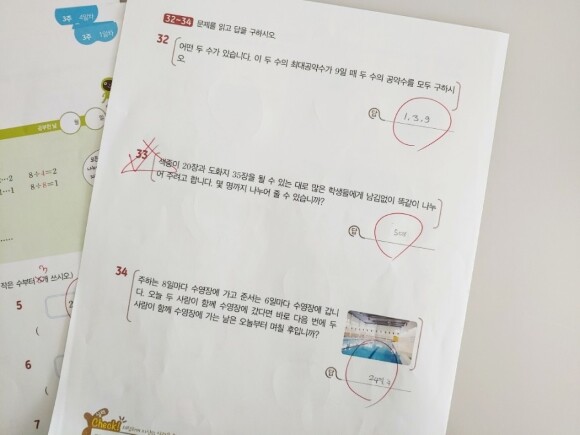 3주 4일차
3주 1일차
공부한 날
월
일
8÷4=2
8÷8=1
작은 수부터
개 쓰시오.)
5
6
7
32-34 문제를 읽고 답을 구하시오.
32
어떤 두 수가 있습니다. 이 두 수의 최대공약수가 9일 때 두 수의 공약수를 모두 구하시
오.
답 1, 3, 9
33
색종이 20장과 도화지 35장을 될 수 있는 대로 많은 학생들에게 남김없이 똑같이 나누
어 주려고 합니다. 몇 명까지 나누어 줄 수 있습니까?
답
34
주하는 8일마다 수영장에 가고 준서는 6일마다 수영장에 갑니
다. 오늘 두 사람이 함께 수영장에 갔다면 바로 다음 번에 두
사람이 함께 수영장에 가는 날은 오늘부터 며칠 후입니까?
답
Check!